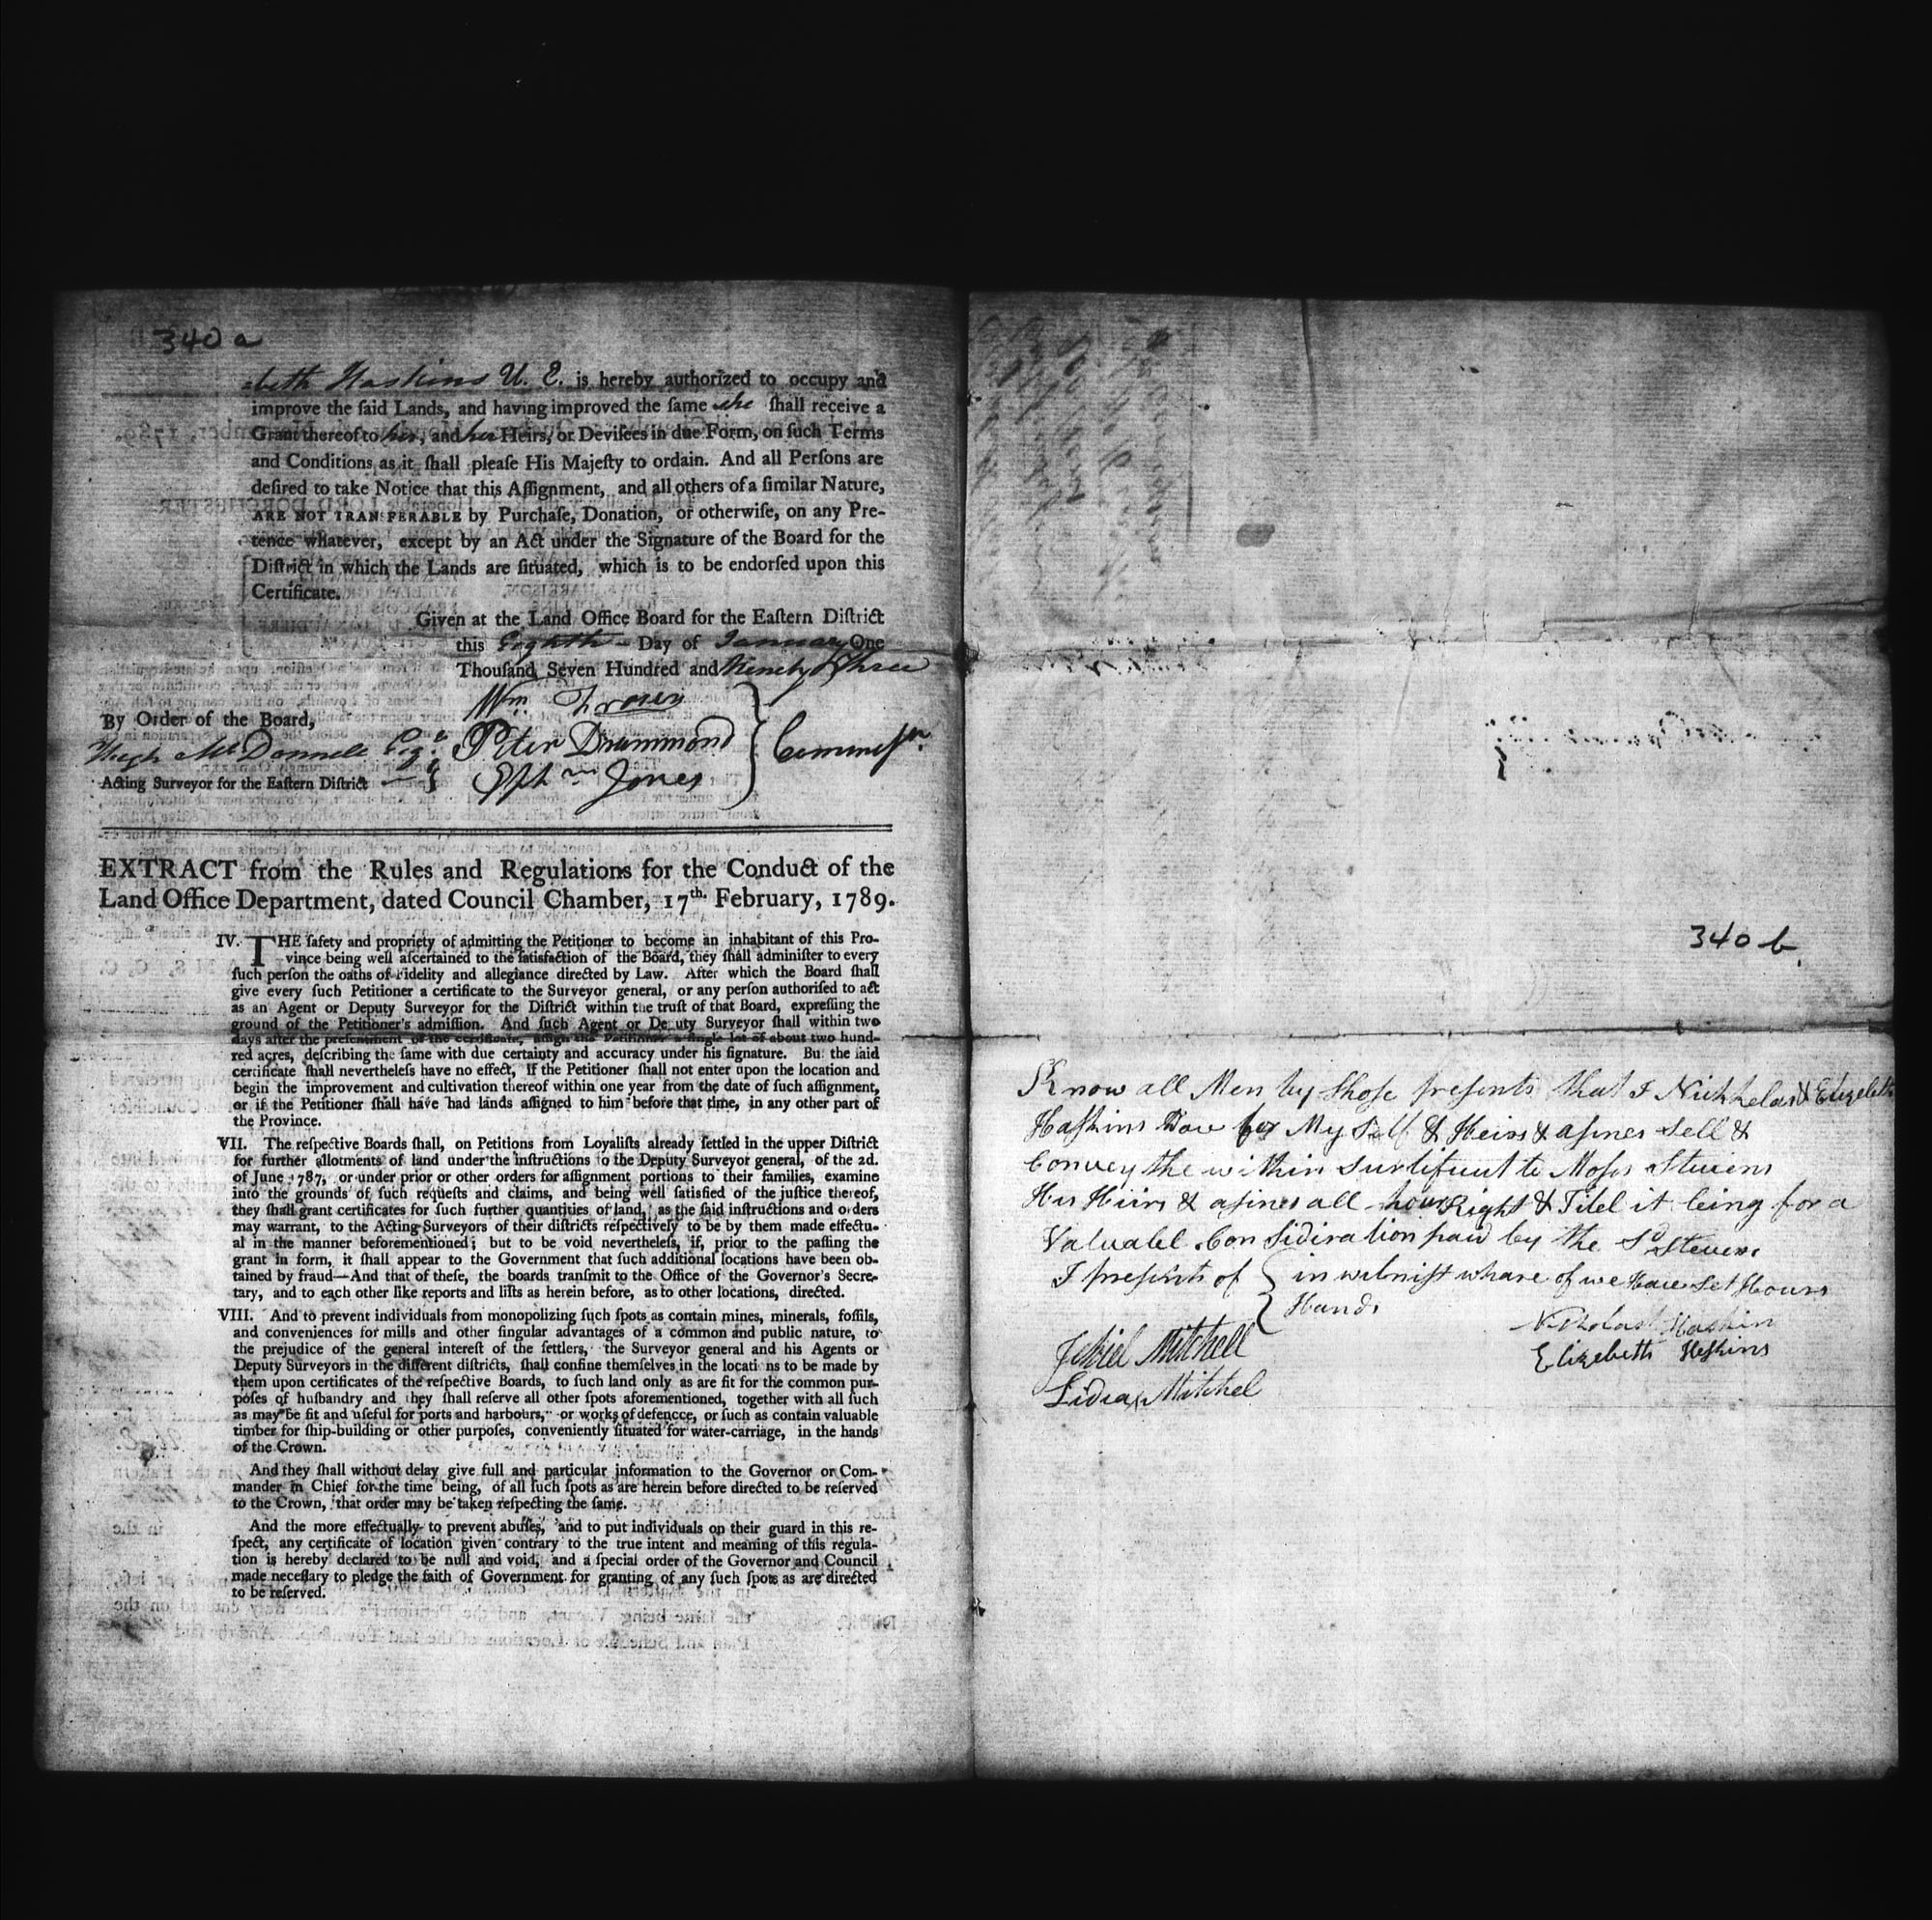 340 a
beth Haskins U. E. is hereby authorized to occupy and
improve the ſaid Lands, and having improved the ſame she ſhall receive a
Grant thereof to her, and her Heirs, or Deviſees in due Form, on ſuch Terms
and Conditions as it ſhall pleaſe His Majeſty to ordain. And all Perſons are
deſired to take Notice that this Aſſignment, and all others of a ſimilar Nature,
ARE NOT TRANSFERABLE by Purchaſe, Donation, or otherwiſe, on any Pre-
tence whatever, except by an Act under the Signature of the Board for the
Diſtrict in which the Lands are ſituated, which is to be endorſed upon this
Certificate.
Given at the Land Office Board for the Eaſtern Diſtrict
this Eighth Day of January One
Thouſand Seven Hundred and Ninety Three
By Order of the Board,
Hugh McDonnell Eqr.
Acting Surveyor for the Eaſtern Diſtrict
Wm.
Peter Drummond
Ephm Jones
EXTRACT from the Rules and Regulations for the Conduct of the
Land Office Department, dated Council Chamber, 17th. February, 1789.
IV. THE ſafety and propriety of admitting the Petitioner to become an inhabitant of this Pro-
vince being well aſcertained to the ſatisfaction of the Board, they ſhall adminiſter to every
ſuch perſon the oaths of Fidelity and allegiance directed by Law. After which the Board ſhall
give every ſuch Petitioner a certificate to the Surveyor general, or any perſon authoriſed to act
as an Agent or Deputy Surveyor for the Diſtrict within the truſt of that Board, expreſſing the
ground of the Petitioner's admiſſion. And ſuch Agent or De uty Surveyor ſhall within two
days after the preſentment of the certificate, aſſign the Petitioner a ſingle lot of about two hund-
red acres, deſcribing the ſame with due certainty and accuracy under his ſignature. Bu. the ſaid
certificate ſhall nevertheleſs have no effect, if the Petitioner ſhall not enter upon the location and
begin the improvement and cultivation thereof within one year from the date of ſuch aſſignment,
or if the Petitioner ſhall have had lands aſſigned to him before that time, in any other part of
the Province.
VII. The reſpective Boards ſhall, on Petitions from Loyaliſts already ſettled in the upper Diſtrict
for further allotments of land under the inſtructions to the Deputy Surveyor general, of the 2d.
of June 1787, or under prior or other orders for aſſignment portions to their families, examine
into the grounds of ſuch requeſts and claims, and being well ſatisfied of the juſtice thereof,
they ſhall grant certificates for ſuch further quantities of land, as the ſaid inſtructions and orders
may warrant, to the Acting Surveyors of their diſtricts reſpectively to be by them made effectu-
al in the manner beforementioned; but to be void nevertheleſs, if, prior to the paſſing the
grant in form, it ſhall appear to the Government that ſuch additional locations have been ob-
tained by fraud—And that of theſe, the boards tranſmit to the Office of the Governor's Secre-
tary, and to each other like reports and liſts as herein before, as to other locations, directed.
VIII. And to prevent individuals from monopolizing ſuch ſpots as contain mines, minerals, foſſils,
and conveniences for mills and other ſingular advantages of a common and public nature, to
the prejudice of the general intereſt of the ſettlers, the Surveyor general and his Agents or
Deputy Surveyors in the different diſtricts, ſhall confine themſelves in the locati ns to be made by
them upon certificates of the reſpective Boards, to ſuch land only as are fit for the common pur-
poſes of huſbandry and they ſhall reſerve all other ſpots aforementioned, together with all ſuch
as may be fit and uſeful for ports and harbours, or works of defencce, or ſuch as contain valuable
timber for ſhip-building or other purpoſes, conveniently ſituated for water-carriage, in the hands
of the Crown.
And they ſhall without delay give full and particular information to the Governor or Com-
mander in Chief for the time being, of all ſuch ſpots as are herein before directed to be reſerved
to the Crown, that order may be taken reſpecting the ſame.
And the more effectually to prevent abuſes, and to put individuals on their guard in this re-
ſpect, any certificate of location given contrary to the true intent and meaning of this regula-
tion is hereby declared to be null and void, and a ſpecial order of the Governor and Council
made neceſſary to pledge the faith of Government for granting of any ſuch ſpots as are directed
to be reſerved.
340 b.
Know all Men by thoſe preſents that I Nichhelas & Elizebeth
Haſkins Dow for My Self & Heirs & aſines Sell &
Convey the within Surtificut to Moses Stevens
His Heirs & aſines all hour Right & Titel it being for a
Valuabel Consideration paid by the Sd Stevens
I preſents of } in witniſt whare of we Have Set Hours
Hands
Nicholas Haskin
Elizebeth Heſkins
Jekiel Mitchell
Lidia Mitchel